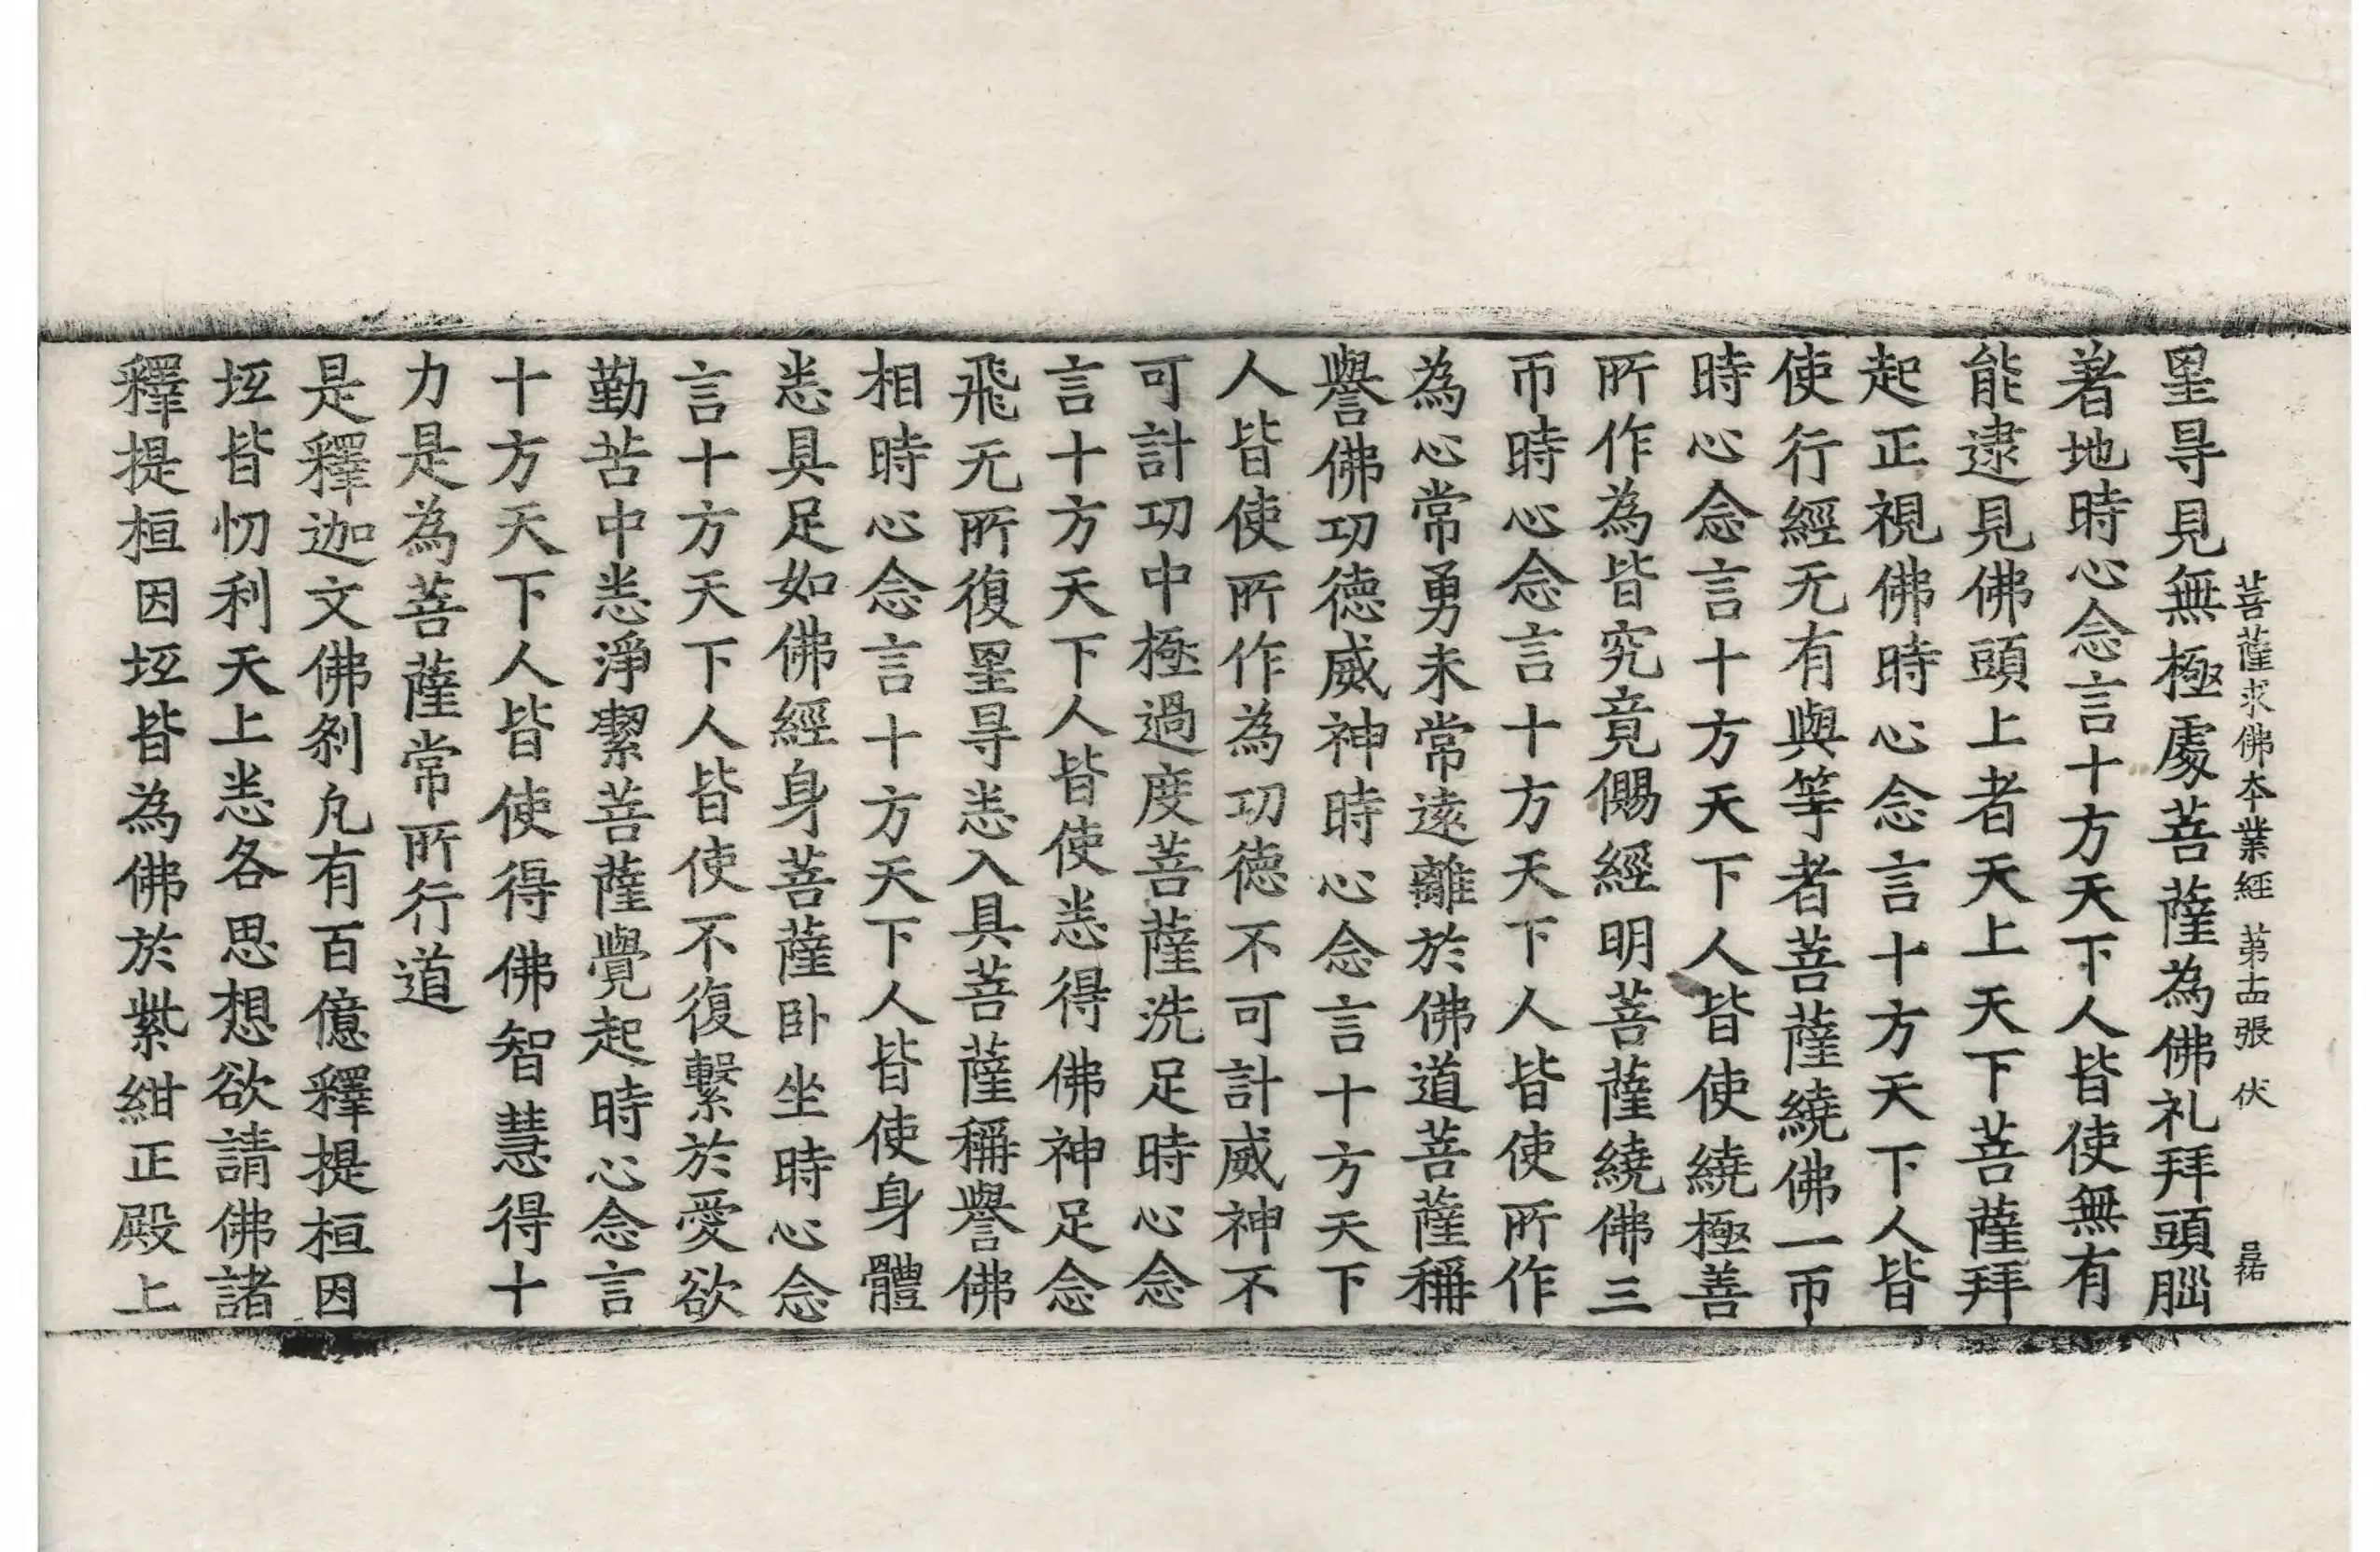 菩薩求佛本業經 第十四張 伏
罣㝵見無極處菩薩為佛礼拜頭𦛁
著地時心念言十方天下人皆使無有
能逮見佛頭上者天上天下菩薩拜
起正視佛時心念言十方天下人皆
使行經无有與等者菩薩繞佛一帀
時心念言十方天下人皆使繞極善
所作為皆究竟㒆經明菩薩繞佛三
帀時心念言十方天下人皆使所作
為心常勇未常遠離於佛道菩薩稱
譽佛功德威神時心念言十方天下
人皆使所作為功德不可計威神不
可計功中極過度菩薩洗足時心念
言十方天下人皆使悉得佛神足念
飛无所復罣㝵悉入具菩薩稱譽佛
相時心念言十方天下人皆使身體
悉具足如佛經身菩薩卧坐時心念
言十方天下人皆使不復繫於愛欲
勤苦中悉淨潔菩薩覺起時心念言
十方天下人皆使得佛智慧得十
力是為菩薩常所行道
是釋迦文佛剎凡有百億釋提桓因
坘皆忉利天上悉各思想欲請佛諸
釋提桓因坘皆為佛於紫紺正殿上